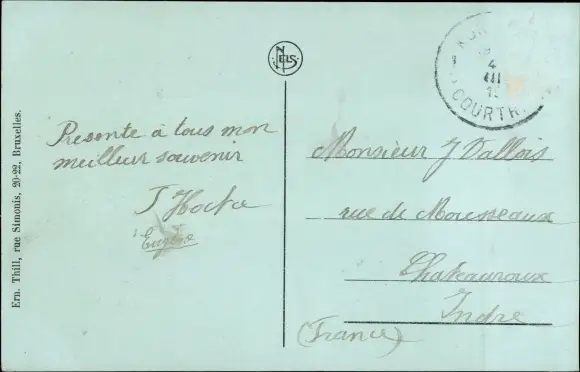 NELS
4
III
COURTR
Ern. Thill, rue Simonis, 20-22, Bruxelles.
Presente à tous mon
meilleur souvenir
J Hocke
Eugène
Monsieur J Vallois
rue de Mousseaux
Chateauroux
Indre
(France)